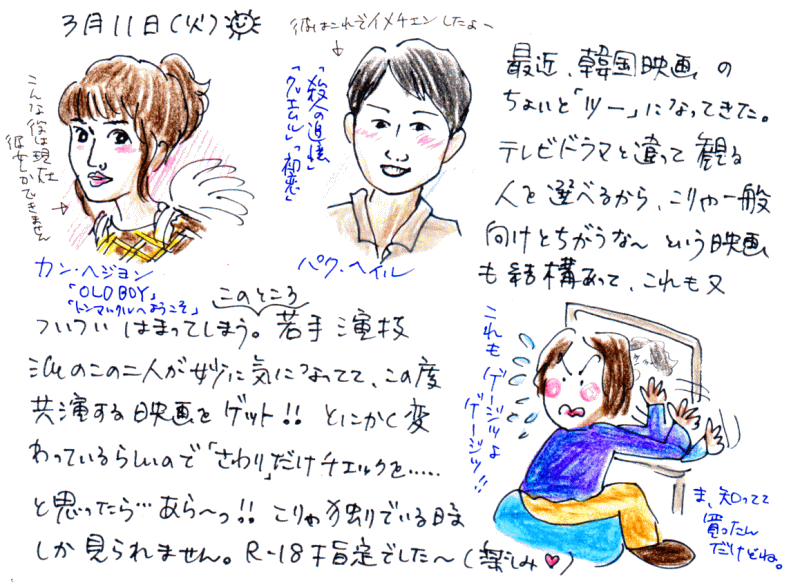 3月11日(火)
彼はこれでイメチェンしたよー
こんな役は現在
彼女しかできません
「殺人の追憶」
「グエムル」「初恋」
カン・ヘジョン
「OLD BOY」
「トンマッコルへようこそ」
パク・ヘイル
最近、韓国映画の
ちょいと「ツー」になってきた。
テレビドラマと違って観る
人を選べるから、こりゃ一般
向けとちがうな〜という映画
も結構あって、これも又
このところ
ついついはまってしまう。若手演技
派のこの二人が妙に気になってて、この度
共演する映画をゲット!! とにかく変
わっているらしいので「さわり」だけチェックを……
と思ったら…あら〜っ!! こりゃ独りでいる時
しか見られません。R-18指定でした〜(楽しみ♥)
これもゲージツよ
ゲージツ!!
ま、知ってて
買ったん
だけどね。